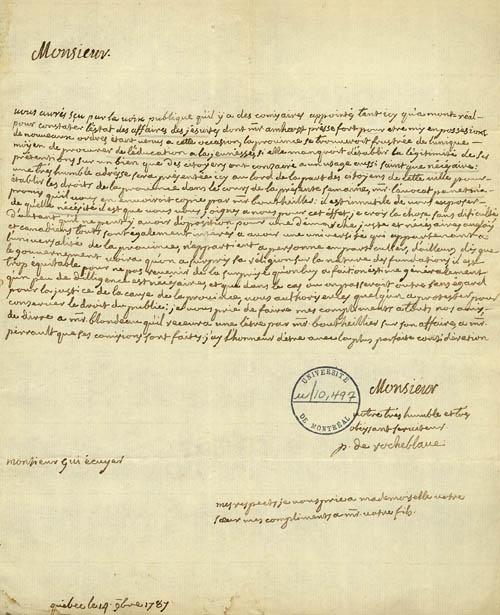 Monsieur.
vous aurés sçu par la voix publique qu'il y a des comisaires appointés tant icy qu'a montréal
pour constater l'état des affaires des jesuites dont mr amherst presse fort pour être mis en possession
de nouveaux ordres étant venus a cette occasion, la province se trouveroit frustrée de l'unique
moyen de procurer de l'éducation a la jeunesse, si elle manquoit d'établir la légitimité de ses
prétentions sur un bien que des citoyens ont consacré a un usage aussi saint que nécesaire.
une tres humble adresse sera présentée icy au lord de la part des citoyens de cette ville pour
établir les droits de la province dans le cours de la présente semaine, mr l'avocat
promis qu'il vous en envoiroit copie par mr boutheillier: il est inutile de vous exposer
de quelle nécesité il est que vous vous joignes a nous pour cet effet, je crois la chose sans dificulté
d'autant que
et canadiens tous sont également intéressés a avoir une université qui appartenant a
l'universalité de la province, n'appartient a personne en particulier, d'ailleurs dès que
le gouvernement verra qu'on a surpris sa réligion sur la nature des fondations, il est
trop équitable pour ne pas revenir de la surprise qu'on luy a fait on est me généralement
qu'un de est nécesaire et que dans le cas ou on passeroit outre sans égard
pour la justice de la cause de la province, nous authorisions quelqu'un a protester pour
conserver le droit du public: je vous prie de faire mes compliments a tous nos amis
de dire a mr. blondeau qu'il recevra une lettre par mr bouthillier sur son affaire, a mr.
perrault que ses comisions sont faites; j'ay l'honneur d'être avec la plus parfaite considération
Monsieur
votre tres humble et tres
obeysant serviteur
p. de rocheblave
UNIVERSITÉ
u/10,497
DE MONTRÉAL
monsieur Gui écuyer
mes respects je vous prie a mademoiselle votre
sœur mes compliments a mr. votre fils.
québec le 19. 9bre 1787